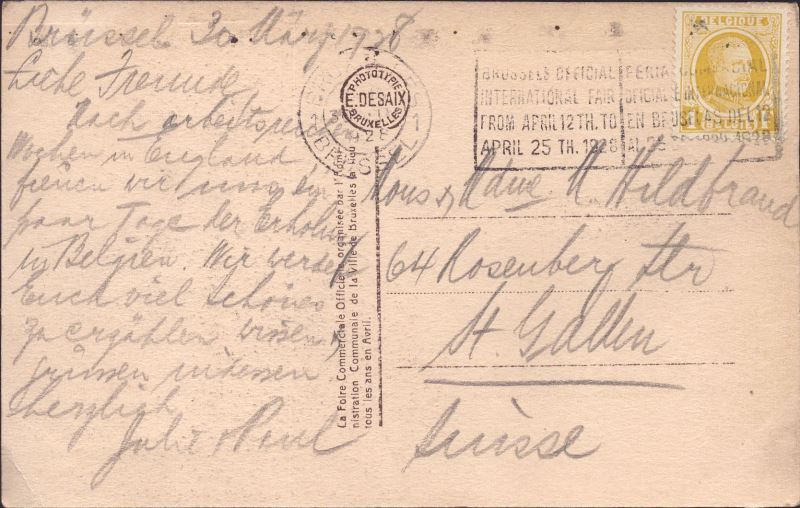 Brüssel 30 März 1928
Liebe Freunde
Nach arbeitsreichen
Wochen in England
freuen wir uns ein
paar Tage der Erholung
in Belgien. Wir werden
Euch viel Schönes
zu erzählen wissen,
grüssen indessen
herzlich
Julie & Paul
PHOTOTYPIE
E. DESAIX
BRUXELLES
La Foire Commerciale Officielle organisée par l'Admi-
nistration Communale de la Ville de Bruxelles a lieu
tous les ans en Avril.
BRUSSELS OFFICIAL
INTERNATIONAL FAIR
FROM APRIL 12TH. TO
APRIL 25 TH. 1928
FERIA COMERCIAL
OFICIAL E INTERNACIONAL
EN BRUSELAS DEL 12
AL 25
BELGIQUE
Mons & Mdme H. Hildbrand
64 Rosenberg Str
St. Gallen
Suisse